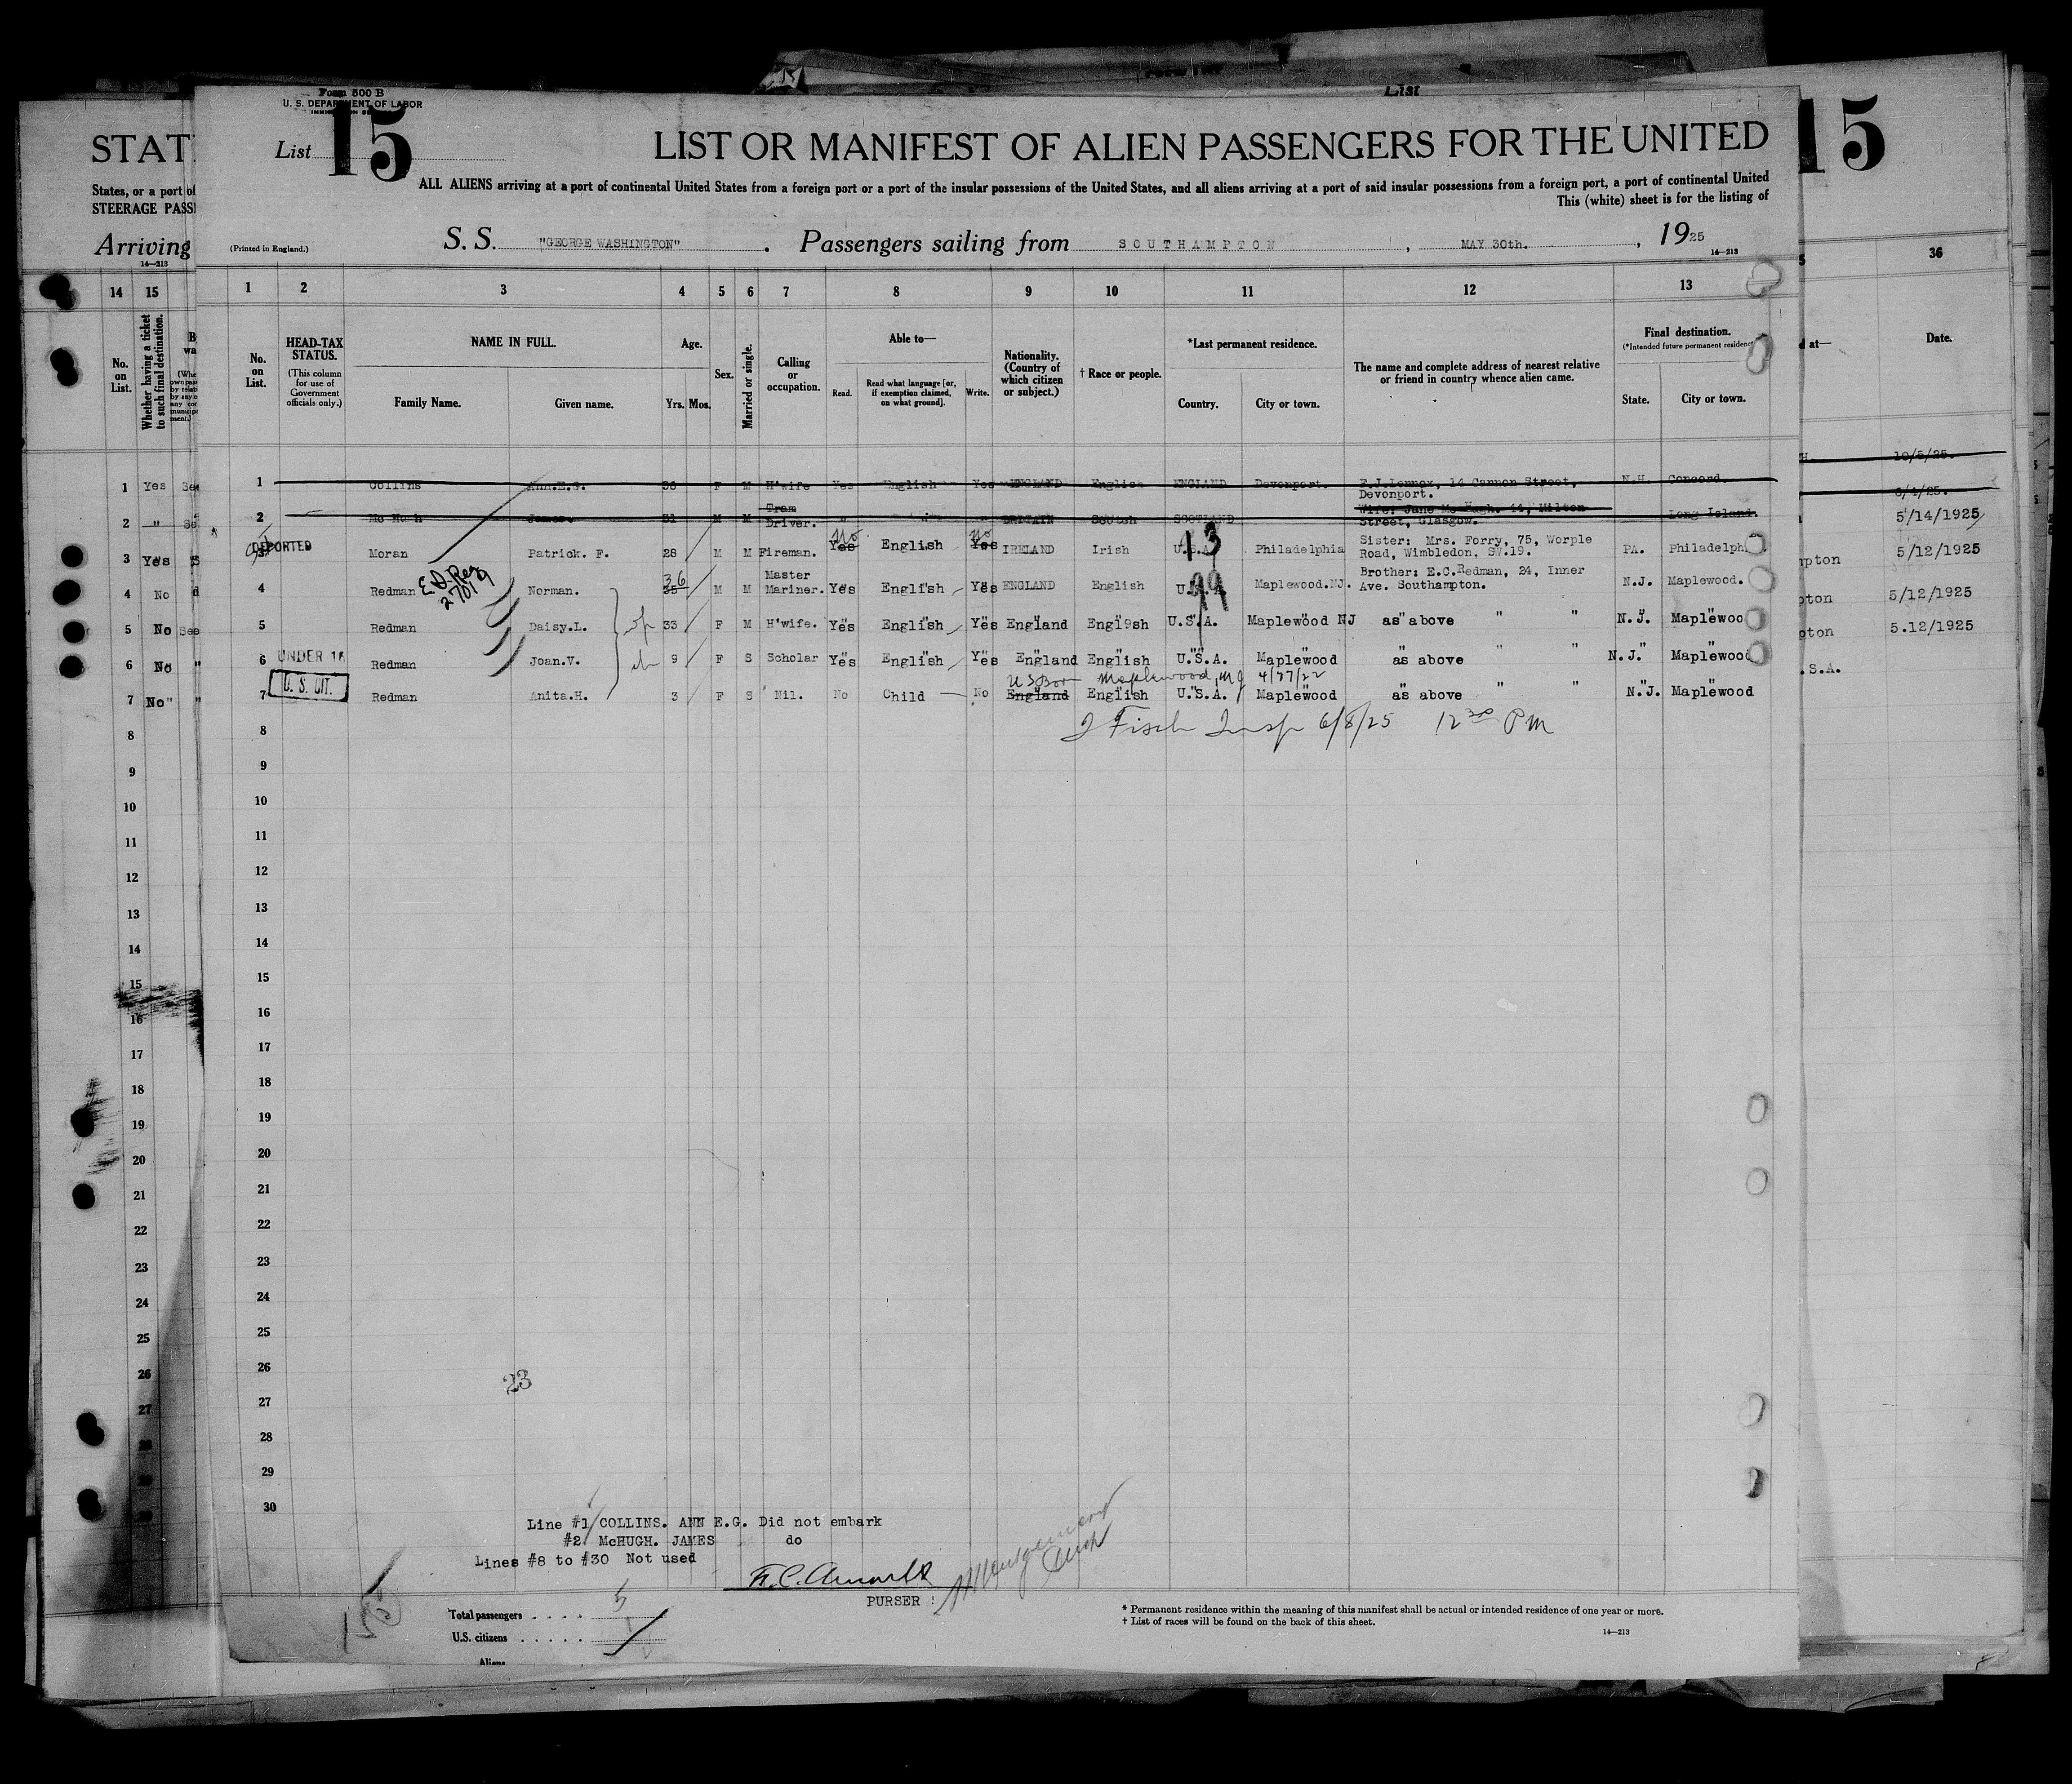 Form 500 B
U. S. DEPARTMENT OF LABOR
List 15
LIST OR MANIFEST OF ALIEN PASSENGERS FOR THE UNITED
ALL ALIENS arriving at a port of continental United States from a foreign port or a port of the insular possessions of the United States, and all aliens arriving at a port of said insular possessions from a foreign port, a port of continental United
This (white) sheet is for the listing of
(Printed in England.) S. S. "GEORGE WASHINGTON" . Passengers sailing from SOUTHAMPTON , MAY 30th. , 1925
14—213
1 2 3 4 5 6 7 8 9 10 11 12 13
No. on List. HEAD-TAX STATUS. (This column for use of Government officials only.) NAME IN FULL. Family Name. Given name. Age. Yrs. Mos. Sex. Married or single. Calling or occupation. Able to— Read. Read what language [or, if exemption claimed, on what ground]. Write. Nationality. (Country of which citizen or subject.) † Race or people. *Last permanent residence. Country. City or town. The name and complete address of nearest relative or friend in country whence alien came. Final destination. (*Intended future permanent residence) State. City or town.
1 Collins Ann.E.G. 36 F M H'wife Yes English Yes ENGLAND English ENGLAND Devonport. F.J.Lennox, 14 Cannon Street, Devonport. N.H. Concord.
2 Mc Hugh James. 31 M M Tram Driver. " " " BRITAIN Scotch SCOTLAND Wife: Jane Mc Hugh. 14, Milton Street, Glasgow. Long Island.
3 DEPORTED Moran Patrick. F. 28 M M Fireman. Yes No English Yes No IRELAND Irish U.S.A. 13 Philadelphia Sister: Mrs. Forry, 75, Worple Road, Wimbledon, SW.19. PA. Philadelph
4 Redman Norman. 35 36 M M Master Mariner. Yes English Yes ENGLAND English U.S.A. 99 Maplewood.NJ. Brother: E.C.Redman, 24, Inner Ave. Southampton. N.J. Maplewood.
5 Redman Daisy.L. 33 F M H'wife. Yes English Yes England Engl9sh U.S.A. Maplewood NJ as above " " N.J. Maplewoo
6 UNDER 16 Redman Joan.V. 9 F S Scholar Yes English Yes England English U.S.A. Maplewood as above " " N.J. Maplewood
US Born Maplewood, NJ 4/27/22
7 U. S. CIT. Redman Anita.H. 3 F S Nil. No Child No England English U.S.A. Maplewood as above " " N.J. Maplewood
8 J Fisch Insp 6/8/25 12 30 PM
9
10
11
12
13
14
15
16
17
18
19
20
21
22
23
24
25
26
23
27
28
29
30
Line #1 COLLINS. ANN E.G. Did not embark
#2 McHUGH. JAMES do
Lines #8 to #30 Not used
PURSER
Total passengers 5
U.S. citizens 1
Aliens
* Permanent residence within the meaning of this manifest shall be actual or intended residence of one year or more.
† List of races will be found on the back of this sheet.
14—213
STAT
States, or a port of
STEERAGE PASS
Arriving
14—213
14 15
No. on List. Whether having a ticket to such final destination.
1 Yes
2 "
3 Yes
4 No
5 No See
6 No "
7 No" "
8
9
10
11
12
13
14
15
16
17
18
19
20
21
22
23
24
25
26
27
15
36
d at— Date.
10/5/25.
5/14/1925
pton 5/12/1925
pton 5/12/1925
pton 5.12/1925
.S.A.